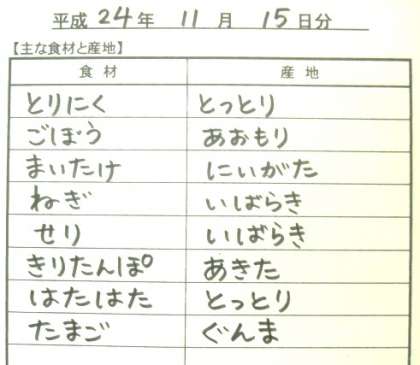 平成 24 年 11 月 15 日分
【主な食材と産地】
食材 産地
とりにく とっとり
ごぼう あおもり
まいたけ にいがた
ねぎ いばらき
せり いばらき
きりたんぽ あきた
はたはた とっとり
たまご ぐんま